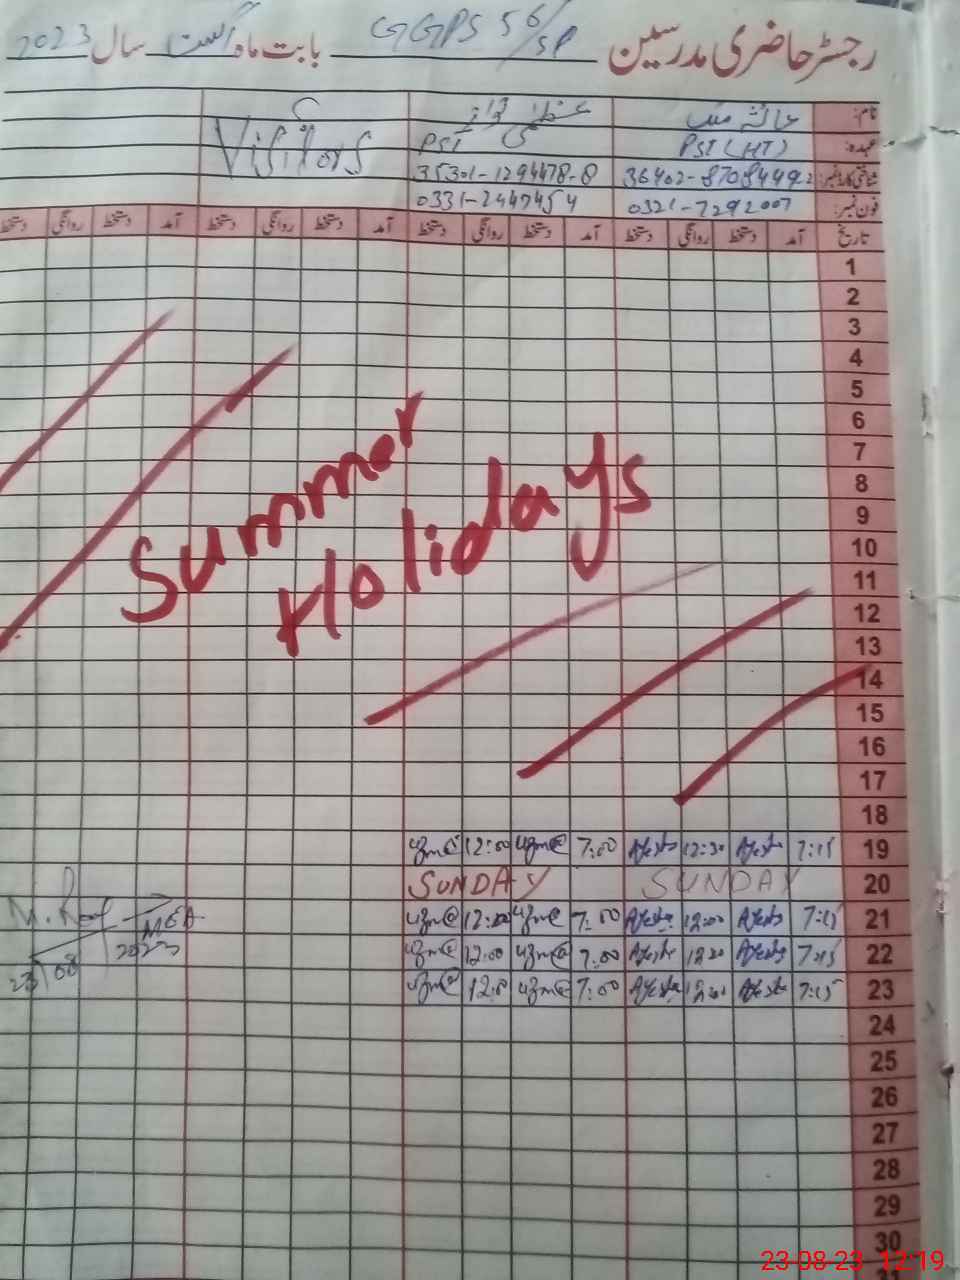 رجسٹر حاضری مدرسین GGPS 56/SP بابت ماہ اگست سال 2023
نام:
عہدہ: PST (HT) PST Visitors
شناختی کارڈ نمبر: 35301-1294478-8
فون نمبر: 0321-7292007 0331-2447454
تاریخ آمد دستخط روانگی دستخط آمد دستخط روانگی دستخط آمد دستخط روانگی دستخط آمد دستخط روانگی دستخط
1
2
3
4
5
6
7
8
9
10
11
12
13
14
15
16
17
18
Summer
Holidays
19 7:15 Ayesha 12:30 Ayesha 7:00 12:00
20 SUNDAY SUNDAY
21 7:15 Ayesha 12:00 Ayesha 7:00 12:00
22 7:15 Ayesha Ayesha 7:00 12:00
23 7:15 Ayesha Ayesha 7:00
MEA
23/08 2023
24
25
26
27
28
29
30
23-08-23 12:19